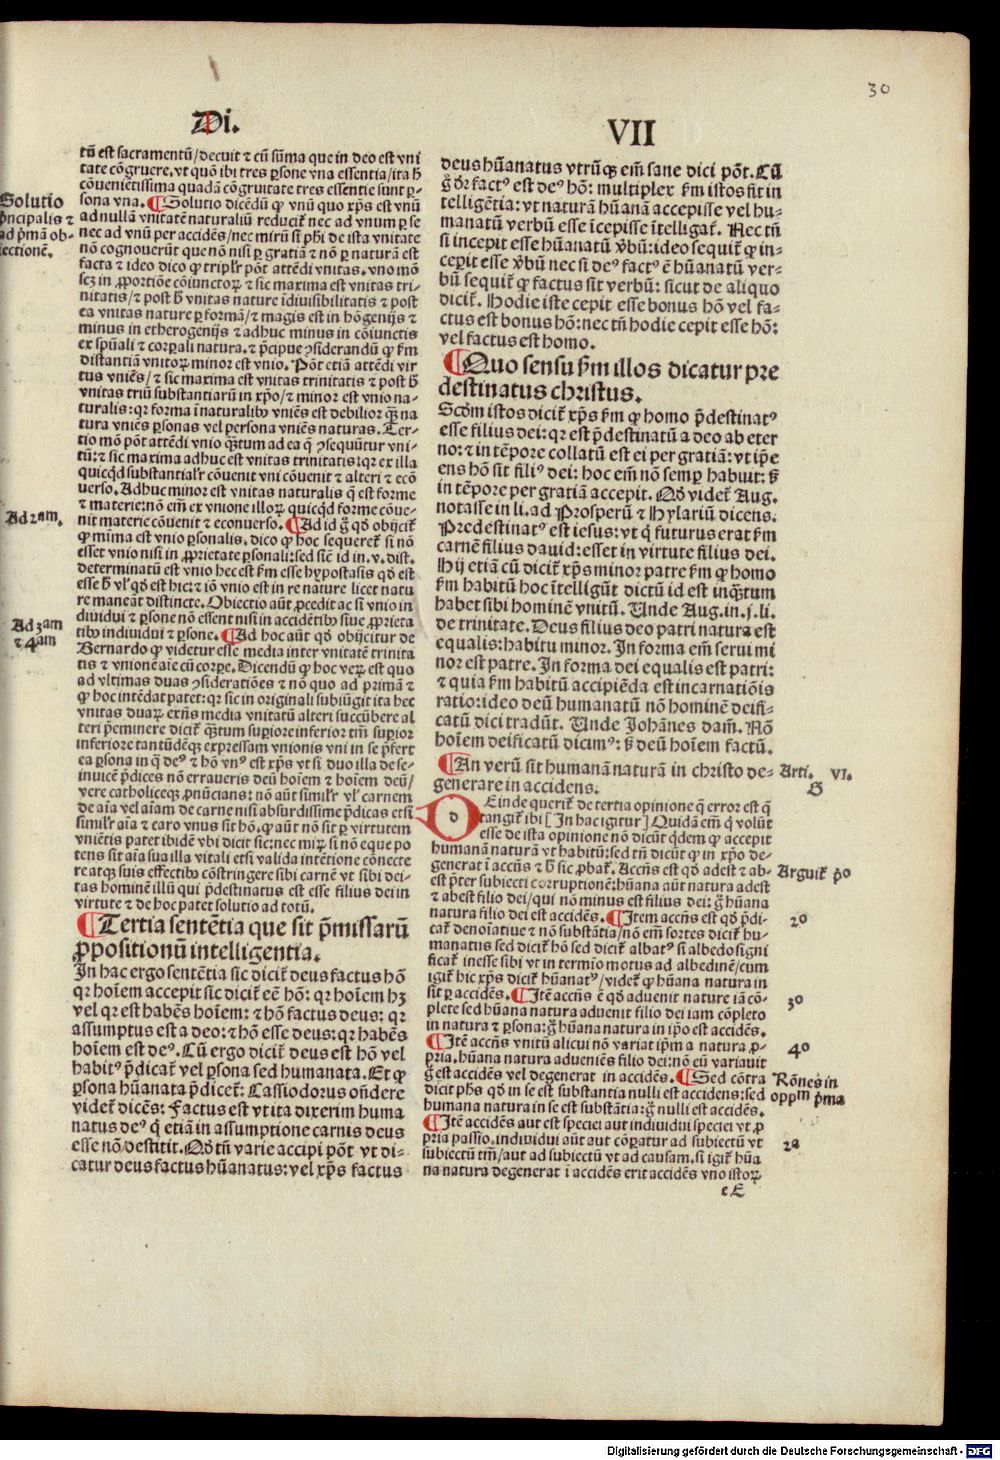 30
Di.
VII
tū est sacramentū/decuit ⁊ cū sūma que in deo est vni
tate cōgruere.vt quō ibi tres ꝑsone vna essentia/ita ħ
cōuenientissima quadā cōgruitate tres essentie sunt ꝑ-
sona vna. ¶Solutio dicēdū ꝙ vnū quo xp̄s est vnū
ad nullā vnitatē naturaliū reducit᷑ nec ad vnum ꝑ se
nec ad vnū per accidēs/nec mirū si ph̄i de ista vnitate
nō cognouerūt que nō nisi ꝑ gratiā ⁊ nō ꝑ naturā est
facta ⁊ ideo dico ꝙ tripl’r pōt attēdi vnitas. vno mō
scꝫ in ꝓportiōe cōiunctoꝝ ⁊ sic maxima est vnitas tri-
nitatis/⁊ post ħ vnitas nature īdiuisibilitatis ⁊ post
ea vnitas nature ꝑ formā/⁊ magis est in hōgenijs ⁊
minus in etherogenijs ⁊ adhuc minus in cōiunctis
ex spūali ⁊ corꝑali natura. ⁊ p̄cipue ꝯsiderandū ꝙ ẜm
distantiā vnitoꝝ minor est vnio. Pōt etiā attēdi vir
tus vniēs/⁊ sic maxima est vnitas trinitatis ⁊ post ħ
vnitas triū substantiarū in xp̄o/⁊ minor est vnio na-
turalis: qꝛ forma īnaturalibꝰ vniēs est debilior q̄ꝫ na
tura vniēs ꝑsonas vel persona vniēs naturas. Ter-
tio mō pōt attēdi vnio q̄ꝫtum ad ea q̄ ꝯsequūtur vni-
tū: ⁊ sic maxima adhuc est vnitas trinitatis: qꝛ ex illa
quicqd substantial’r cōuenit vni cōuenit ⁊ alteri ⁊ ecō
uerso. Adhuc minor est vnitas naturalis q̄ est forme
⁊ materie: nō em̄ ex vnione illoꝝ quicqd forme cōue-
nit materie cōuenit ⁊ econuerso. ¶Ad id g̊ qd obijcit᷑
ꝙ mīma est vnio ꝑsonalis. dico ꝙ hoc sequeret᷑ si nō
esset vnio nisi in ꝓprietate ꝑsonali: sed siēē id in.v.dist.
determinatū est vnio hec est ẜm esse hypostasis qd est
esse ħ vl’ qd est hic: ⁊ iō vnio est in re nature licet natu
re maneāt distincte. Obiectio aūt ꝓcedit ac si vnio in
diuidui ⁊ ꝑsone nō essent nisi in accidētibꝰ siue ꝓprieta
tibꝰ indiuidui ⁊ ꝑsone. ¶Ad hoc aūt qd obijcitur de
Bernardo ꝙ videtur esse media inter vnitatē trinita
tis ⁊ vnionē aīe cū corꝑe. Dicendū ꝙ hoc veꝝ est quo
ad vltimas duas ꝯsiderationes ⁊ nō quo ad primā ⁊
ꝙ hoc intēdat patet: qꝛ sic in originali subiūgit ita hec
vnitas duaꝝ exn̄s media vnitatū alteri succūbere al
teri p̄eminere dicit᷑ q̄ꝫtum suꝑiore inferior tm̄ suꝑior
inferiore tantūdēqꝫ expressam vnionis vni in se p̄fert
ea ꝑsona in q̄ deꝰ ⁊ hō vnꝰ est xp̄s vt si duo illa de se-
inuicē p̄dices nō erraueris deū hoīem ⁊ hoīem deū/
vere catholiceqꝫ ꝓnūcians: nō aūt simil’r vl’ carnem
de aīa vel aīam de carne nisi absurdissime p̄dicas etsi
simil’r aīa ⁊ caro vnus sit hō. ꝙ aūt nō sit ꝑ virtutem
vniētis patet ibidē vbi dicit sic: nec miꝝ si nō eque po
tens sit aīa sua illa vitali etsi valida intētione cōnecte
re atqꝫ suis effectibꝰ cōstringere sibi carnē vt sibi dei-
tas hominē illū qui p̄destinatus est esse filius dei in
virtute ⁊ de hoc patet solutio ad totū.
¶Tertia sentētia que sit p̄missarū
ꝓpositionū intelligentia.
In hac ergo sentētia sic dicit᷑ deus factus hō
qꝛ hoīem accepit sic dicit᷑ eē hō: qꝛ hoīem hꝫ
vel qꝛ est habēs hoīem: ⁊ hō factus deus: qꝛ
assumptus est a deo: ⁊ hō esse deus: qꝛ habēs
hoīem est deꝰ. Cū ergo dicit᷑ deus est hō vel
habitꝰ p̄dicat᷑ vel ꝑsona sed humanata. Et ꝙ
ꝑsona hūanata p̄dicet᷑: Cassiodorus on̄dere
videt᷑ dicēs: Factus est vt ita dixerim huma
natus deꝰ q̄ etiā in assumptione carnis deus
esse nō destitit. Qd tn̄ varie accipi pōt vt di-
catur deus factus hūanatus: vel xp̄s factus
Solutio
p̄ncipalis ⁊
ad p̄mā ob-
iectionē.
Ad 2am.
Ad 3am
⁊ 4am
deus hūanatus vtrūqꝫ em̄ sane dici pōt. Cū
g̊ dr̄ factꝰ est deꝰ hō: multiplex ẜm istos fit in
telligētia: vt naturā hūanā accepisse vel hu-
manatū verbū esse īcepisse ītelligat᷑. Nec tn̄
si incepit esse hūanatū v̄bū: ideo sequit᷑ ꝙ in-
cepit esse v̄bū nec si deꝰ factꝰ ē hūanatū ver-
bū sequit᷑ ꝙ factus sit verbū: sicut de aliquo
dicit᷑. Hodie iste cepit esse bonus hō vel fa-
ctus est bonus hō: nec tn̄ hodie cepit esse hō:
vel factus est homo.
¶Quo sensu ẜm illos dicatur pre
destinatus christus.
Scdm istos dicit᷑ xp̄s ẜm ꝙ homo p̄destinatꝰ
esse filius dei: qꝛ est p̄destinatū a deo ab eter
no: ⁊ in tēpore collatū est ei per gratiā: vt ip̄e
ens hō sit filiꝰ dei: hoc em̄ nō semꝑ habuit: ẜ
in tēpore per gratiā accepit. Qd videt᷑ Aug.
notasse in li. ad Prosperū ⁊ Hylariū dicens.
Predestinatꝰ est iesus: vt q̄ futurus erat ẜm
carnē filius dauid: esset in virtute filius dei.
Hij etiā cū dicit᷑ xp̄s minor patre ẜm ꝙ homo
ẜm habitū hoc ītelligūt dictū id est inq̄ꝫtum
habet sibi hominē vnitū. Unde Aug.in.j.li.
de trinitate. Deus filius deo patri natura est
equalis: habitu minor. In forma em̄ serui mi
nor est patre. In forma dei equalis est patri:
⁊ quia ẜm habitū accipiēda est incarnatiōis
ratio: ideo deū humanatū nō hominē deifi-
catū dici tradūt. Unde Johānes dam̄. Nō
hoīem deificatū dicimꝰ: ẜ deū hoīem factū.
¶An verū sit humanā naturā in christo de-
generare in accidens.
DEinde querit᷑ de tertia opinione q̄ error est q̄
tangit᷑ ibi [In hac igitur] Quidā em̄ q̄ volūt
esse de ista opinione nō dicūt q̄dem ꝙ accepit
humanā naturā vt habitū: sed tn̄ dicūt ꝙ in xp̄o de-
generat ī accn̄s ⁊ ħ sic ꝓbat᷑. Accn̄s est qd adest ⁊ ab-
est p̄ter subiecti corruptionē: hūana aūt natura adest
⁊ abest filio dei/qui nō minus est filius dei: g̊ hūana
natura filio dei est accidēs. ¶Item accn̄s est qd p̄di-
cat᷑ denoīatiue ⁊ nō substātia/nō em̄ sortes dicit᷑ hu-
manatus sed dicit᷑ hō sed dicit᷑ albatꝰ si albedo signi
ficat᷑ inesse sibi vt in termīo motus ad albedinē/cum
igit᷑ hic xp̄s dicit᷑ hūanatꝰ/videt᷑ ꝙ hūana natura in
sit ꝑ accidēs. ¶Itē accn̄s ē qd aduenit nature iā cō-
plete sed hūana natura aduenit filio dei iam cōpleto
in natura ⁊ ꝑsona: g̊ hūana natura in ip̄o est accidēs.
¶Itē accn̄s vnitū alicui nō variat ip̄m a natura ꝓ-
pria. hūana natura adueniēs filio dei: nō eū variauit
g̊ est accidēs vel degenerat in accidēs. ¶Sed cōtra
dicit ph̄s qd in se est substantia nulli est accidens: sed
humana natura in se est substātia: g̊ nulli est accidēs.
¶Itē accidēs aut est speciei aut indiuidui speciei vt ꝓ
pria passio. indiuidui aūt aut cōꝑatur ad subiectū vt
subiectū tm̄/aut ad subiectū vt ad causam. si igit᷑ hūa
na natura degenerat ī accidēs erit accidēs vno istoꝝ
e E
Arti. VI.
S
Arguit᷑ p̄o
2o
3o
4o
Rōnes in
oppm̄ p̄ma
2a
Digitalisierung gefördert durch die Deutsche Forschungsgemeinschaft - DFG